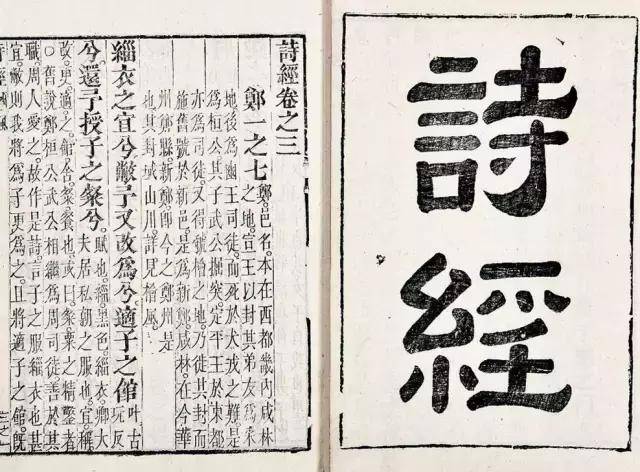 詩經
詩經卷之三
鄭一之七
鄭邑名本在西都畿內咸林
之地宣王以封其弟友為采
地後為幽王司徒而死於犬戎之難是
為桓公其子武公掘突定平王於東都
亦為司徒又得虢檜之地乃徙其封而
施舊號於新邑是為新鄭咸林在今華
州鄭縣新鄭即今之鄭州是
也其封域山川詳見檜風
緇衣之宜兮敝予又改為兮適子之館
叶古
玩反
兮還予授子之粲兮
賦也緇黑色緇衣卿大
夫居私朝之服也宜稱
改更適之館舍粲餐也或曰粲粟之精鑿者
○舊說鄭桓公武公相繼為周司徒善於其
職周人愛之故作是詩言子之服緇衣也甚
宜敝則我將為子更為之且將適子之館既